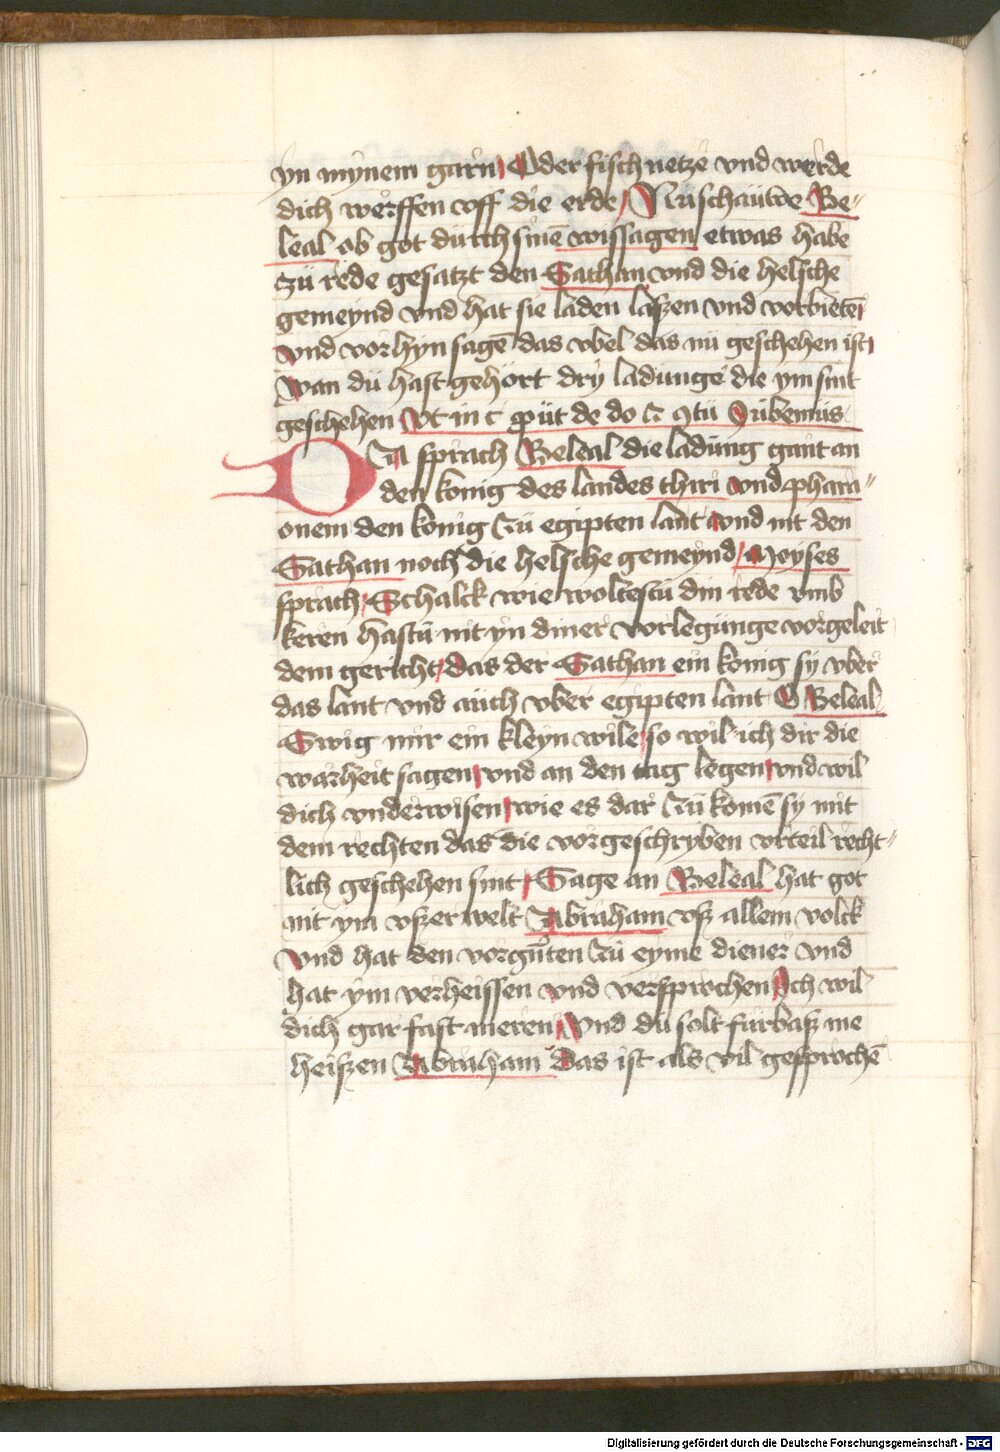 yn mynem garn Oder fisch netze vnd werde
dich werffen vff die erde / Nu schauwe Be-
leal ob got durch sinē wissagen etwas habe
zü rede gesatzt den Sathan vnd die helsche
gemeynd vnd hat sie laden laßen vnd vorbietē
vnd vorhyn sagē das vbel das nü geschehen ist
wan dü hast gehört dry ladunge die ym sint
geschehen vt in c
DA sprach Beleal die ladüng gant an
den konig des landes thiri vnd phara-
onem den konig zü egipten lant vnd nit den
Sathan noch die helsche gemeynd / Moyses
sprach Schalck wie woltestü din rede vmb
keren hastü nit yn diner vorlegünge vorgeleit
dem gericht das der Sathan ein konig sy vber
das lant vnd aüch vber egipten lant O Beleal
Swig mir ein kleyn wile so wil ich dir die
warheit sagen vnd an den tag legen vnd wil
dich vnderwisen wie es dar zü komē sy mit
dem rechten das die vorgeschryben vrteil recht-
lich geschehen sint / Sage an Beleal hat got
nit ym vßerwelt Abraham vß allem volck
vnd hat den zü eyme diener vnd
hat ym verheissen vnd versprochen Ich wil
dich gar fast meren vnd dü solt fürbaß me
heißen Abraham das ist als vil gesprochē
Digitalisierung gefördert durch die Deutsche Forschungsgemeinschaft - DFG